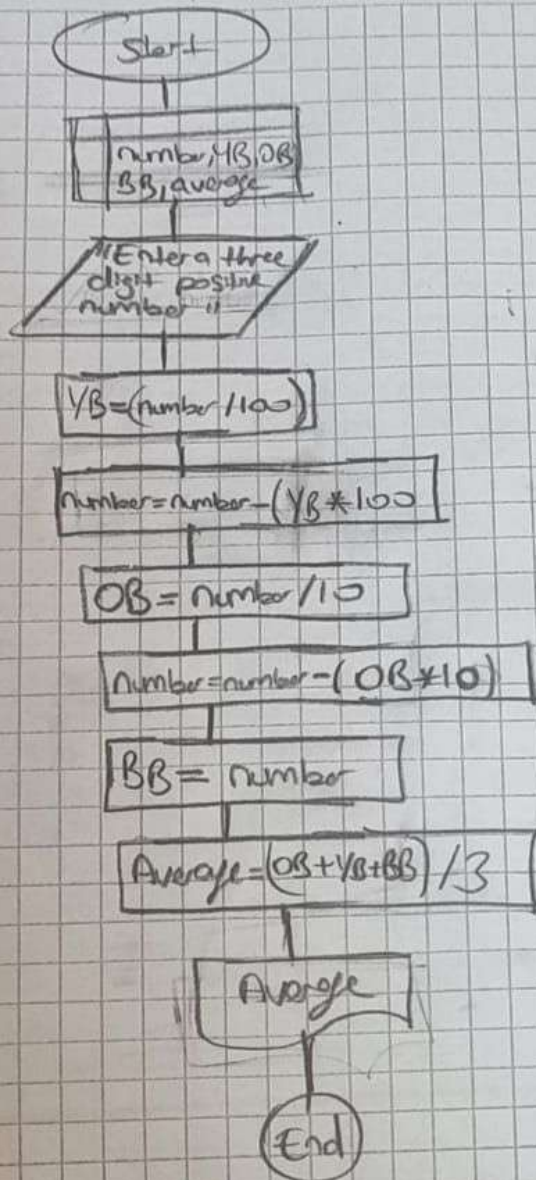 Start
number, YB, OB
BB, average
"Enter a three
digit positive
number "
YB=(number/100)
number=number-(YB*100
OB= number/10
number=number-(OB*10)
BB= number
Average=(OB+YB+BB)/3
Average
End